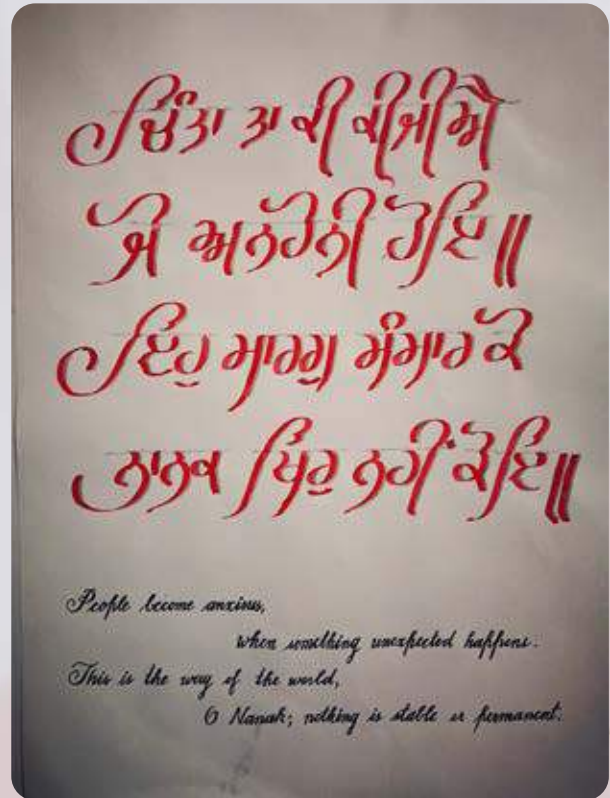 ਚਿੰਤਾ ਤਾ ਕੀ ਕੀਜੀਐ
ਜੋ ਅਨਹੋਨੀ ਹੋਇ॥
ਇਹੁ ਮਾਰਗੁ ਸੰਸਾਰ ਕੋ
ਨਾਨਕ ਥਿਰੁ ਨਹੀਂ ਕੋਇ॥
People become anxious,
when something unexpected happens.
This is the way of the world,
O Nanak; nothing is stable or permanent.